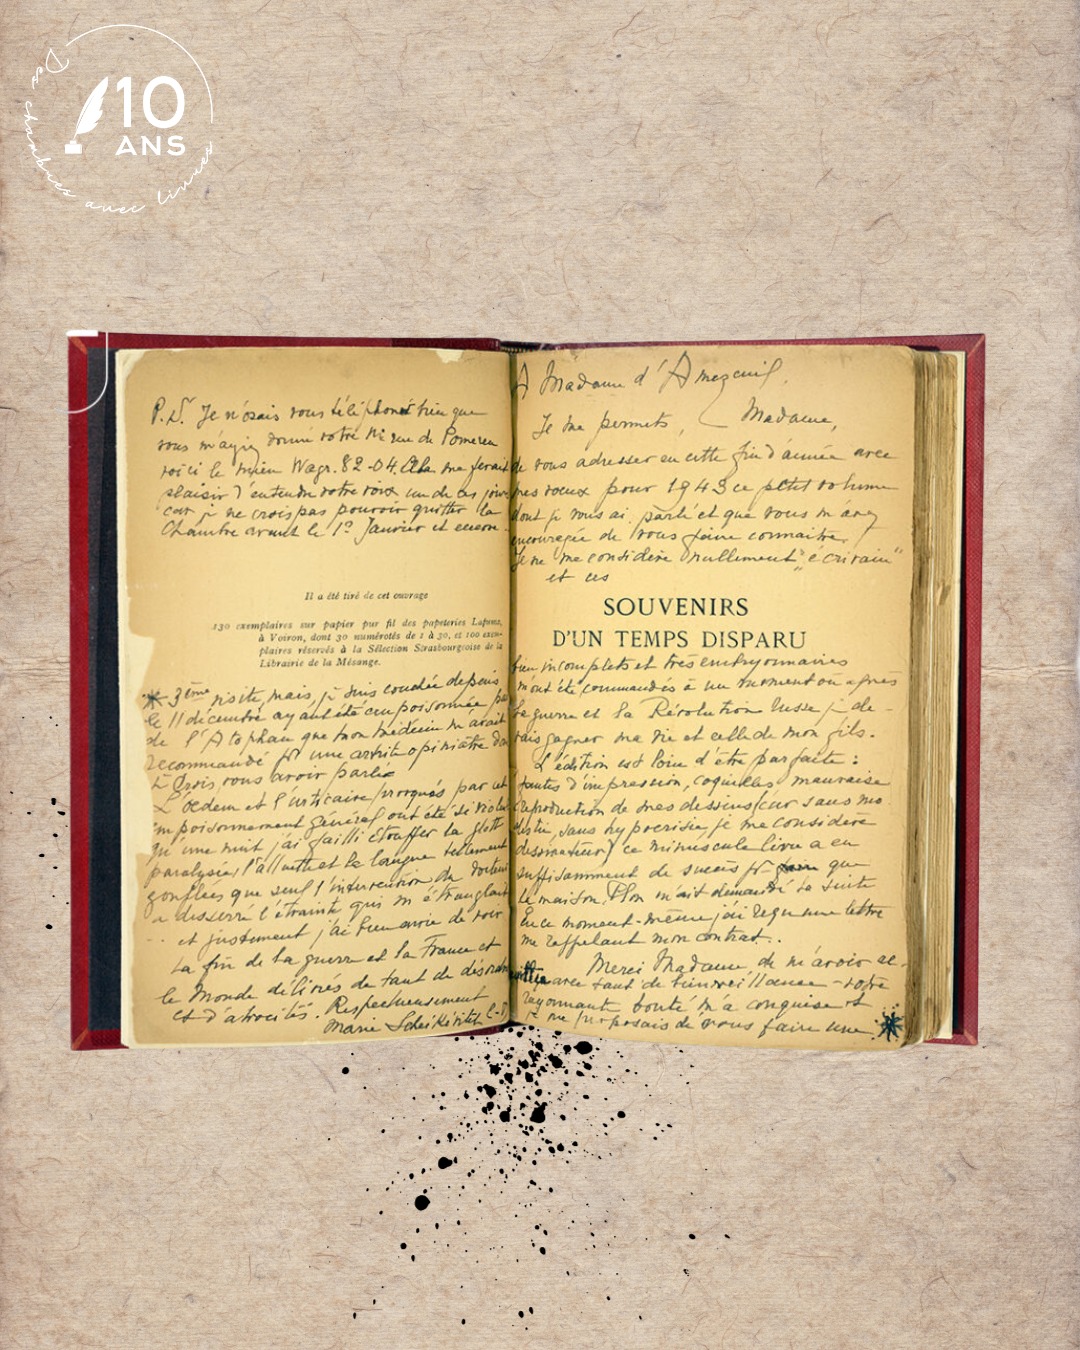 Des chambres avec livres
10
ANS
P.S. Je n'osais vous téléphoner bien que
vous m'ayiez donné votre N° rue de Pomereu
voici le mien Wagr. 82-04. Cela me ferait
plaisir d'entendre votre voix un de ces jours
car je ne crois pas pouvoir quitter la
Chambre avant le 1er Janvier et encore..
Il a été tiré de cet ouvrage
130 exemplaires sur papier pur fil des papeteries Lafuma,
à Voiron, dont 30 numérotés de 1 à 30, et 100 exem-
plaires réservés à la Sélection Strasbourgeoise de la
Librairie de la Mésange.
3ème visite, mais, je suis couchée depuis
le 11 décembre ayant été empoisonnée par
de l'Atophan que mon médecin m'avait
recommandé pr une arthrite opiniâtre dont
je crois vous avoir parlé
L'œdem et l'urticaire provoqués par cet
empoisonnement général ont été si violents
qu'une nuit j'ai failli étouffer la glotte
paralysée, l'a luette et la langue tellement
gonflées que seul l'intervention du docteur
a desserré l'étrainte qui m'étranglait
.. et justement j'ai bien envie de voir
la fin de la guerre et la France et
le Monde délivrés de tant de désordres
et d'atrocités. Respectueusement
Marie Scheikévitch
A Madame d'Amezeuil.
Je me permets, Madame,
de vous adresser en cette fin d'année avec
mes vœux pour 1943 ce petit volume
dont je vous ai parlé et que vous m'avez
encouragée de vous faire connaître.
Je ne me considère nullement "écrivain"
et ces
SOUVENIRS
D'UN TEMPS DISPARU
bien incomplets et très embryonnaires
m'ont été commandés à un moment où après
la guerre et la Révolution russe je de-
vais gagner ma vie et celle de mon fils.
L'édition est loin d'être parfaite :
fautes d'impression, coquilles, mauvaise
reproduction de mes dessins (car sans mo
destie, sans hypocrisie, je me considère
dessinateur) ce minuscule livre a eu
suffisamment de succès pr que
la maison Plon m'ait demandé la suite
En ce moment-même j'ai reçu une lettre
me rappelant mon contrat..
Merci Madame, de m'avoir ac-
cueillie avec tant de bienveillance - votre
rayonnante bonté m'a conquise et
je me proposais de vous faire une